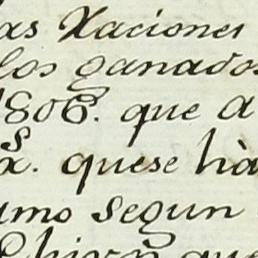 as Naciones
los ganados
1806. que a
s. quese hà
umo segun